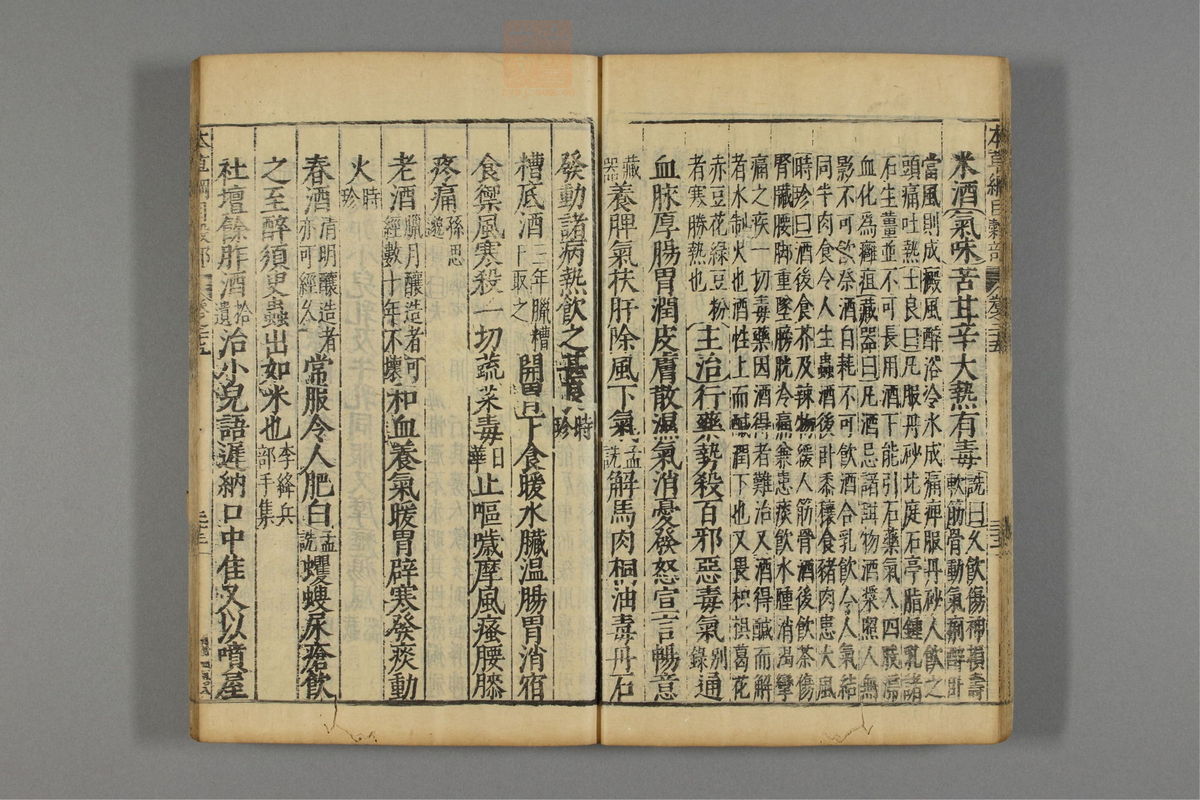 米酒氣味苦甘辛大熱有毒
詵曰久飲傷神損壽
軟筋骨動氣痢醉卧
當風則成癜風醉浴冷水成痛痺服丹砂人飲之
頭痛吐熱士良曰凡服丹砂北庭石亭脂鍾乳諸
石生薑並不可長用酒下能引石藥氣入四肢滯
血化為癰疽藏器曰凡酒忌諸甜物酒漿照人無
影不可飲祭酒自耗不可飲酒合乳飲令人氣結
同牛肉食令人生蟲酒後卧黍穰食豬肉患大風
時珍曰酒後食芥及辣物緩人筋骨酒後飲茶傷
腎臟腰脚重墜膀胱冷痛兼患痰飲水腫消渴攣
痛之疾一切毒藥因酒得者難治又酒得鹹而解
者水制火也酒性上而鹹潤下也又畏枳椇葛花
赤豆花綠豆粉
者寒勝熱也
主治行藥勢殺百邪惡毒氣別錄通
血脉厚腸胃潤皮膚散濕氣消憂發怒宣言暢意
藏器養脾氣扶肝除風下氣孟詵解馬肉桐油毒丹石
發動諸病熱飲之甚良時珍
糟底酒三年臘糟下取之開胃下食暖水臟溫腸胃消宿
食禦風寒殺一切蔬菜毒日華止嘔噦摩風瘙腰膝
疼痛孫思邈
老酒臘月釀造者可經數十年不壞和血養氣暖胃辟寒發痰動
火時珍
春酒清明釀造者亦可經久常服令人肥白孟詵蠼螋尿瘡飲
之至醉須臾蟲出如米也李絳兵部手集
社壇餘胙酒拾遺治小兒語遲納口中佳又以噴屋